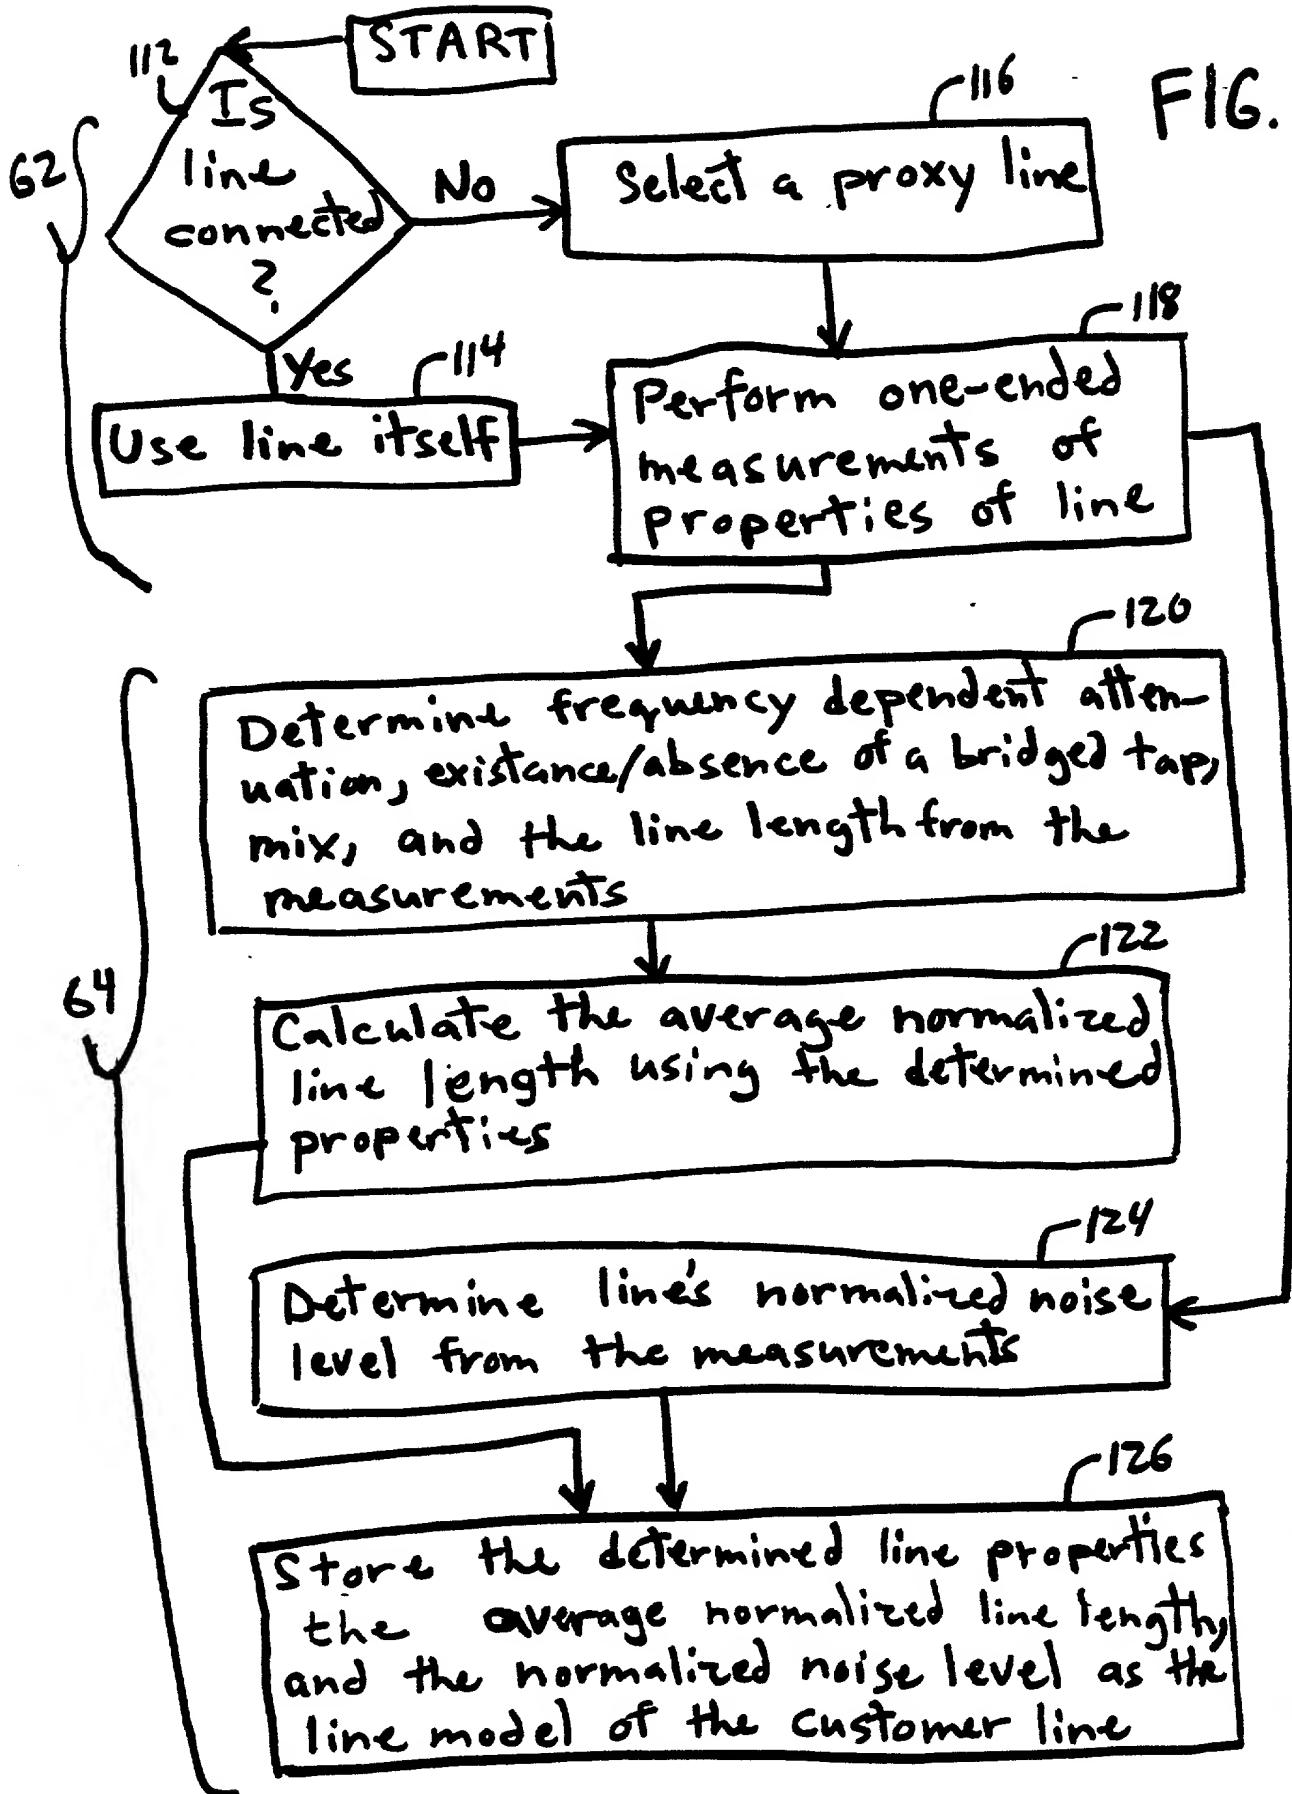 START
112
Is
line
connected
?
62
No
116
FIG.
Select a proxy line
118
Yes
114
Use line itself
Perform one-ended
measurements of
properties of line
120
Determine frequency dependent atten-
uation, existance/absence of a bridged tap,
mix, and the line length from the
measurements
64
122
Calculate the average normalized
line length using the determined
properties
124
Determine line's normalized noise
level from the measurements
126
Store the determined line properties
the average normalized line length,
and the normalized noise level as the
line model of the customer line